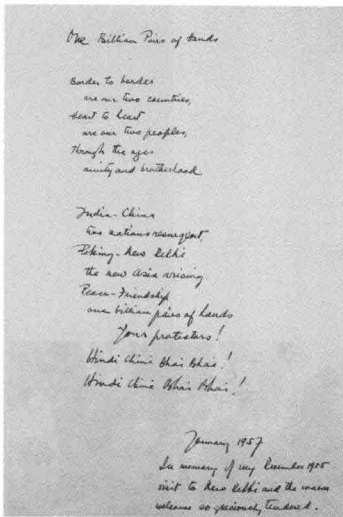 One Billion Pairs of Hands
Border to border
are our two countries,
Heart to heart
are our two peoples,
Through the ages
amity and brotherhood
India-China
two nations resurgent,
Peking-New Delhi
the new Asia arising
Peace-Friendship
one billion pairs of hands
Your protectors!
Hindi Chini Bhai Bhai!
Hindi Chini Bhai Bhai!
January 1957
In memory of my December 1955
visit to New Delhi and the warm
welcome so graciously tendered.